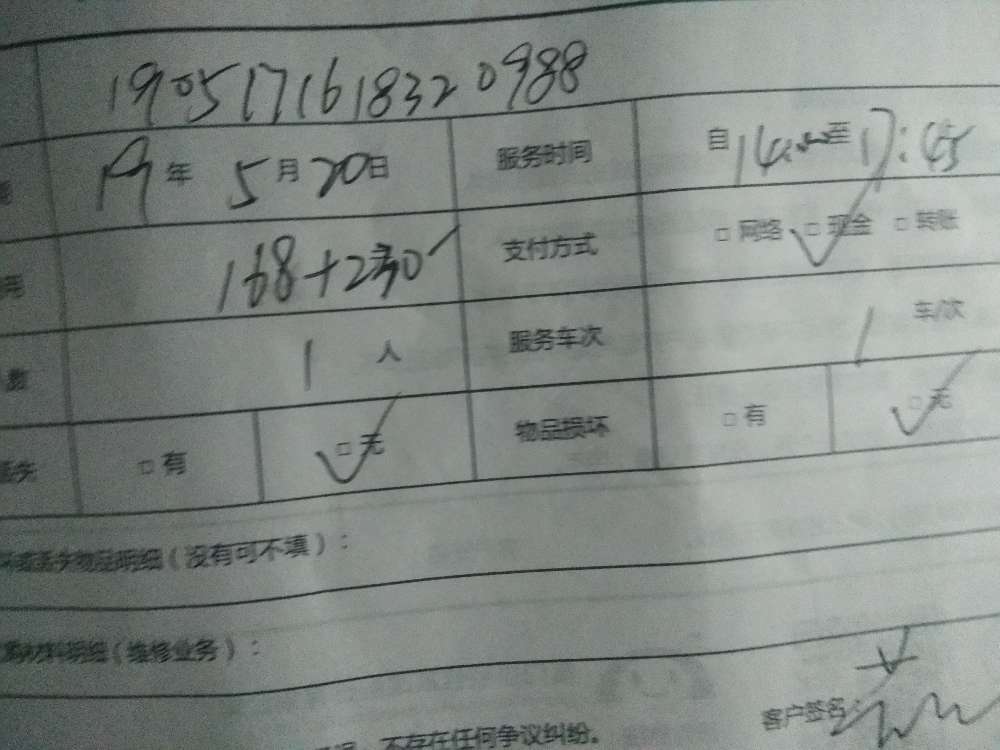 190517161832 0988
19年 5月20日 服务时间 自14:00至17:45
168+230 支付方式 □网络 □现金 □转账
数 1人 服务车次 1 车/次
丢失 □有 □无 物品损坏 □有 □无
坏或丢失物品明细（没有可不填）：
材料明细（维修业务）：
客户签名：
不存在任何争议纠纷。